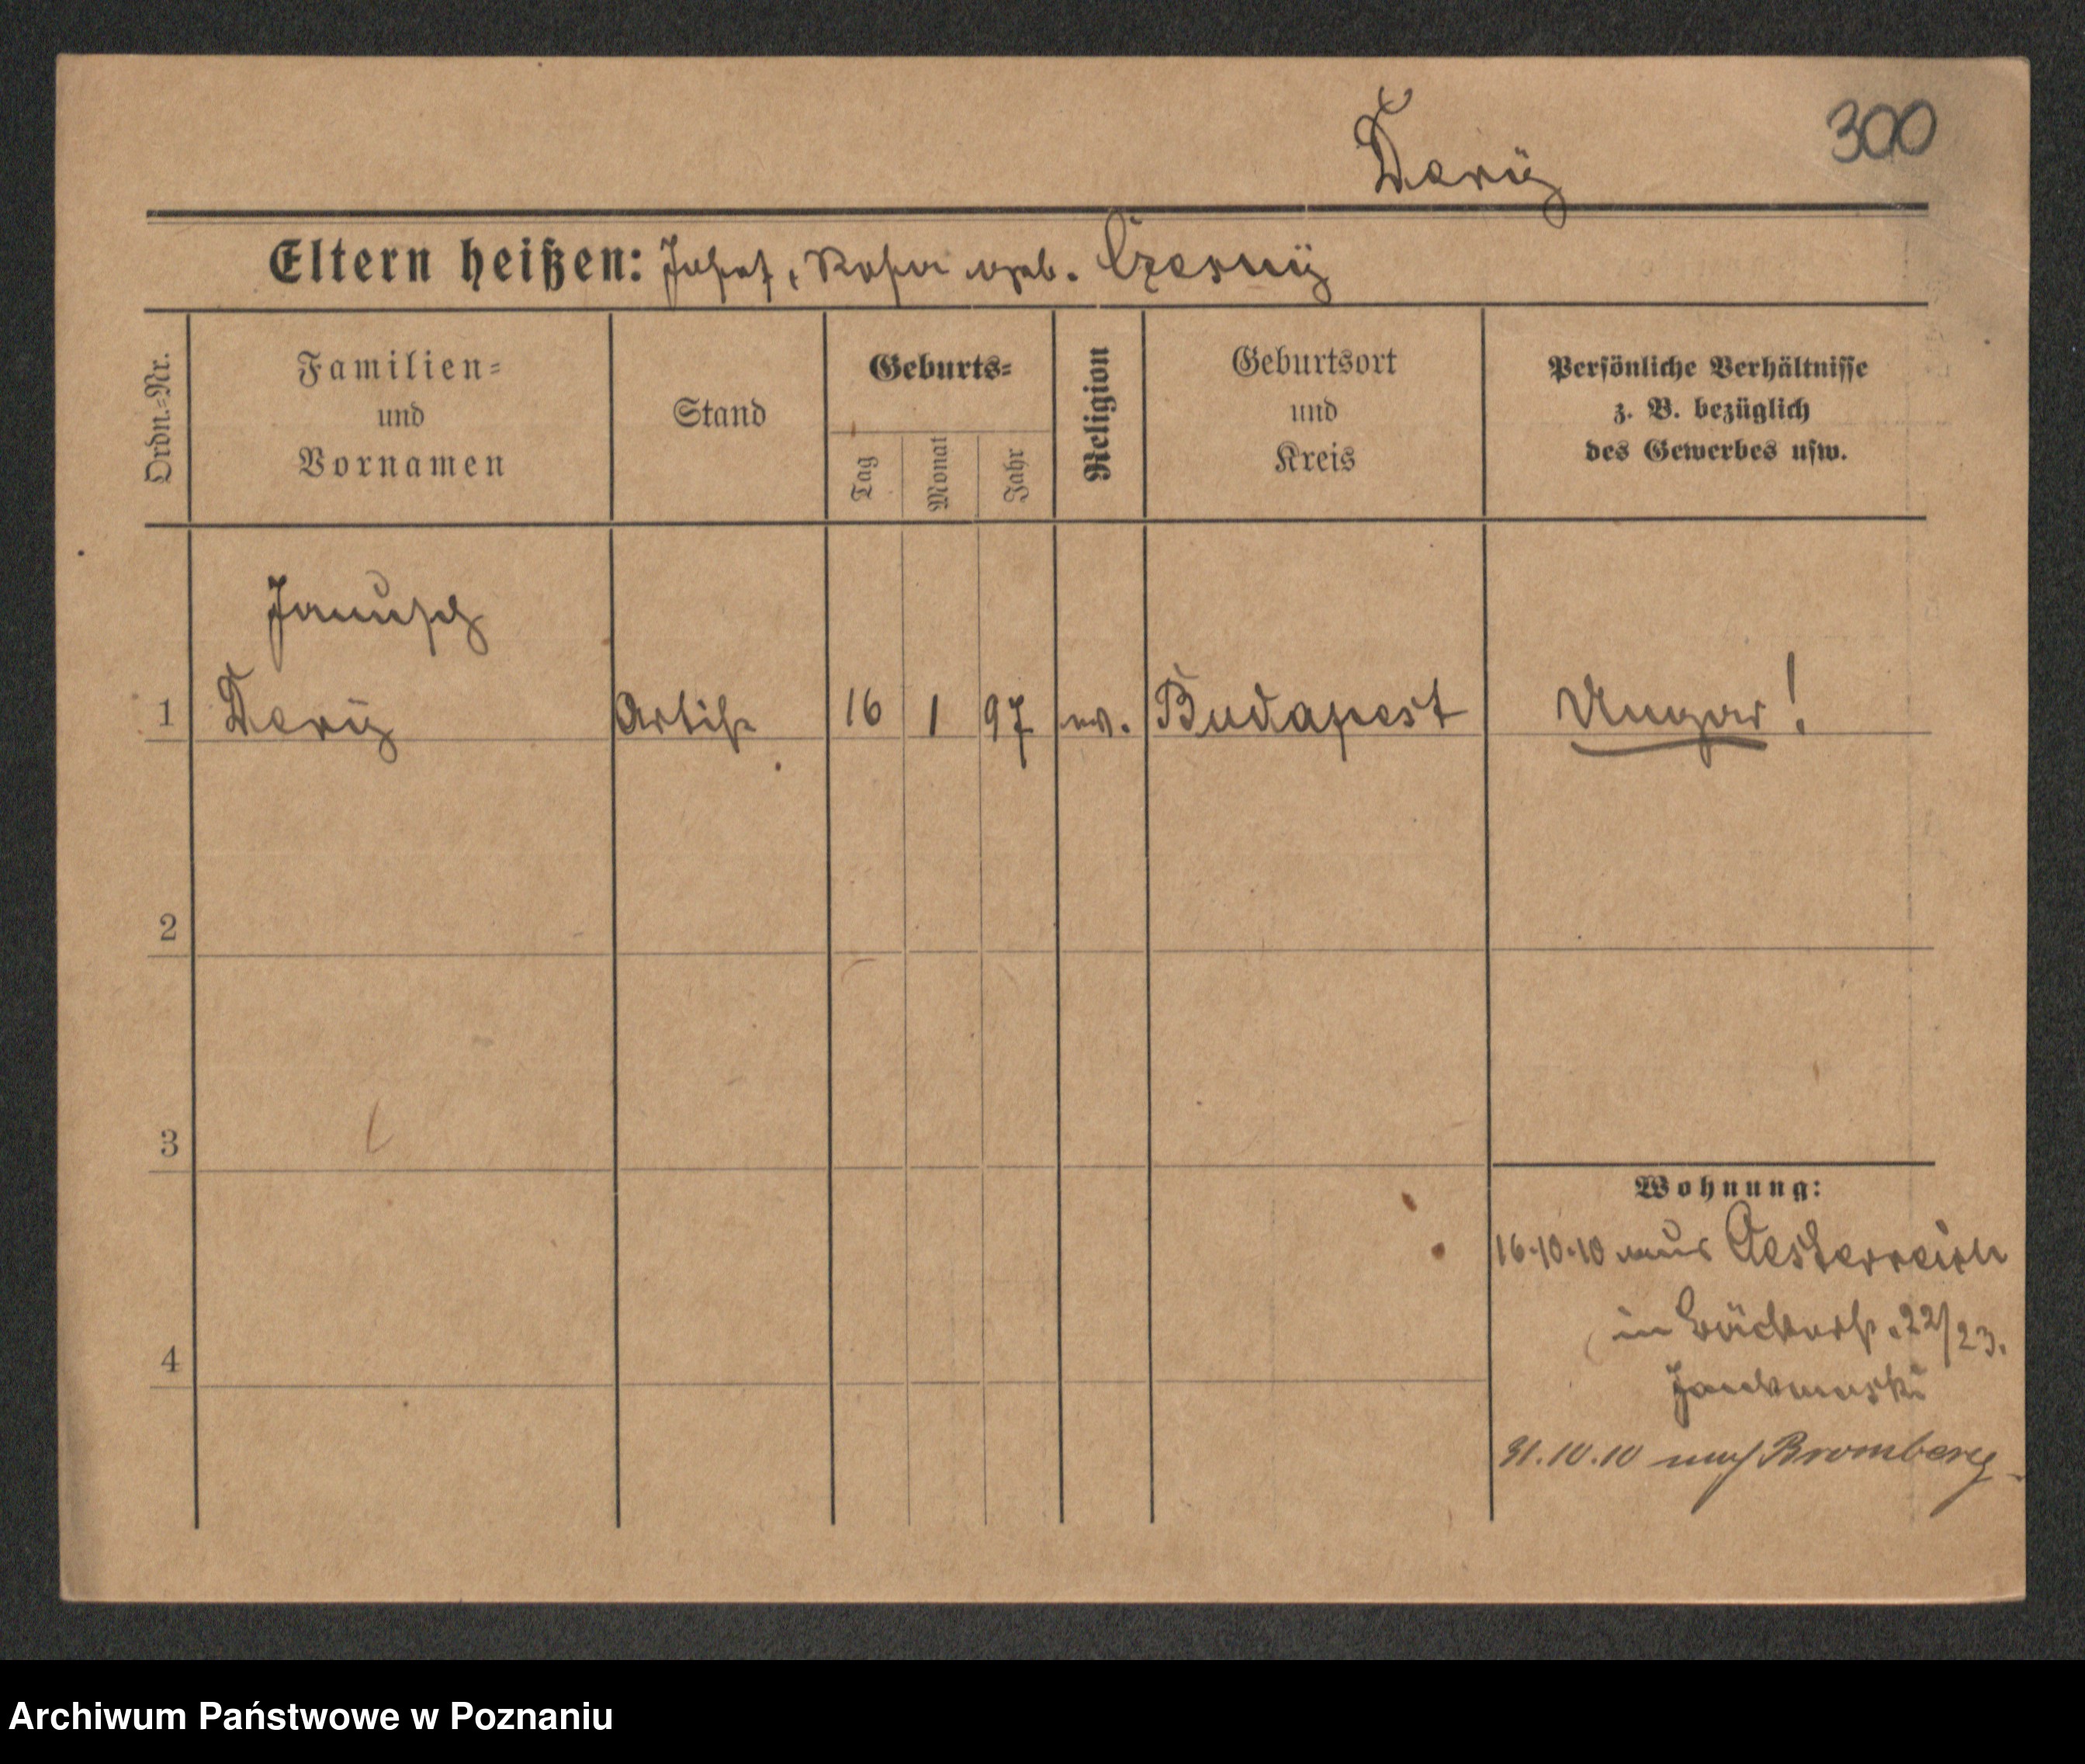 300
Dariÿ
Eltern heißen: Josef, Rosa geb. Czerniÿ
Ordn.-Nr.
Familien- und Vornamen
Stand
Geburts-
Tag
Monat
Jahr
Religion
Geburtsort und Kreis
Persönliche Verhältnisse z. B. bezüglich des Gewerbes usw.
1
Dariÿ
Artist
16
1
97
Budapest
Ungar!
2
3
4
Wohnung:
16.10.10 aus Oesterreich
in Bäckerst. 22/23.
31.10.10 nach Bromberg
Archiwum Państwowe w Poznaniu